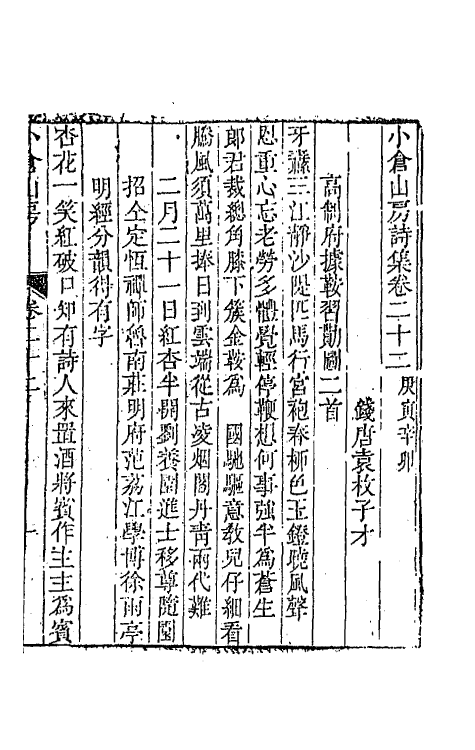 小倉山房詩集卷二十二 庚寅辛卯
錢唐袁枚子才
高制府據鞍習勤圖二首
牙纛三江靜沙隄匹馬行宮袍春柳色玉鐙曉風聲
恩重心忘老勞多體覺輕停鞭想何事強半爲蒼生
郎君裁總角膝下簇金鞍爲 國馳驅意敎兒仔細看
鵬風須萬里捧日到雲端從古凌烟閣丹靑兩代難
二月二十一日紅杏半開劉養園進士移尊隨園
招仝定恆禪師魯南莊明府范荔江學博徐雨亭
明經分韻得有字
杏花一笑紅破口知有詩人來置酒將賓作主主爲賓
小倉山房 卷二十二 一